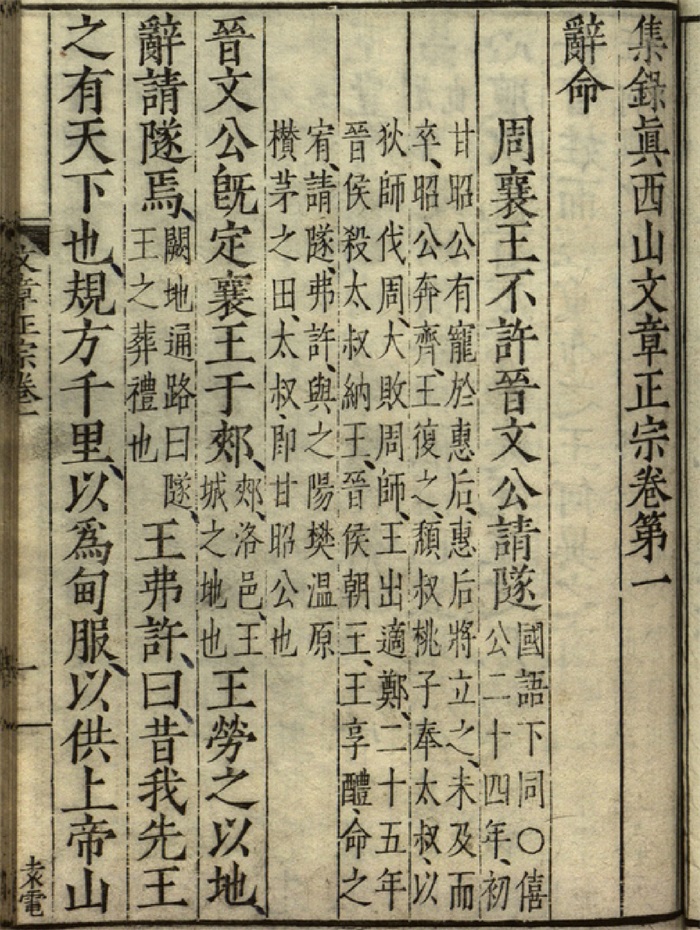 集錄眞西山文章正宗卷第一
辭命
周襄王不許晉文公請隧
國語下同○僖
公二十四年、初
甘昭公有寵於惠后、惠后將立之、未及而
卒、昭公奔齊、王復之、頹叔桃子奉太叔、以
狄師伐周、大敗周師、王出適鄭、二十五年
晉侯殺太叔納王、晉侯朝王、王享醴、命之
宥、請隧、弗許、與之陽樊溫原
欑茅之田、太叔、即甘昭公也
晉文公旣定襄王于郟、
郟、洛邑、王
城之地也
王勞之以地、
辭請隧焉、
闕地通路曰隧、
王之葬禮也
王弗許、曰、昔我先王
之有天下也、規方千里、以爲甸服、以供上帝山
文章正宗卷一
一
袁電